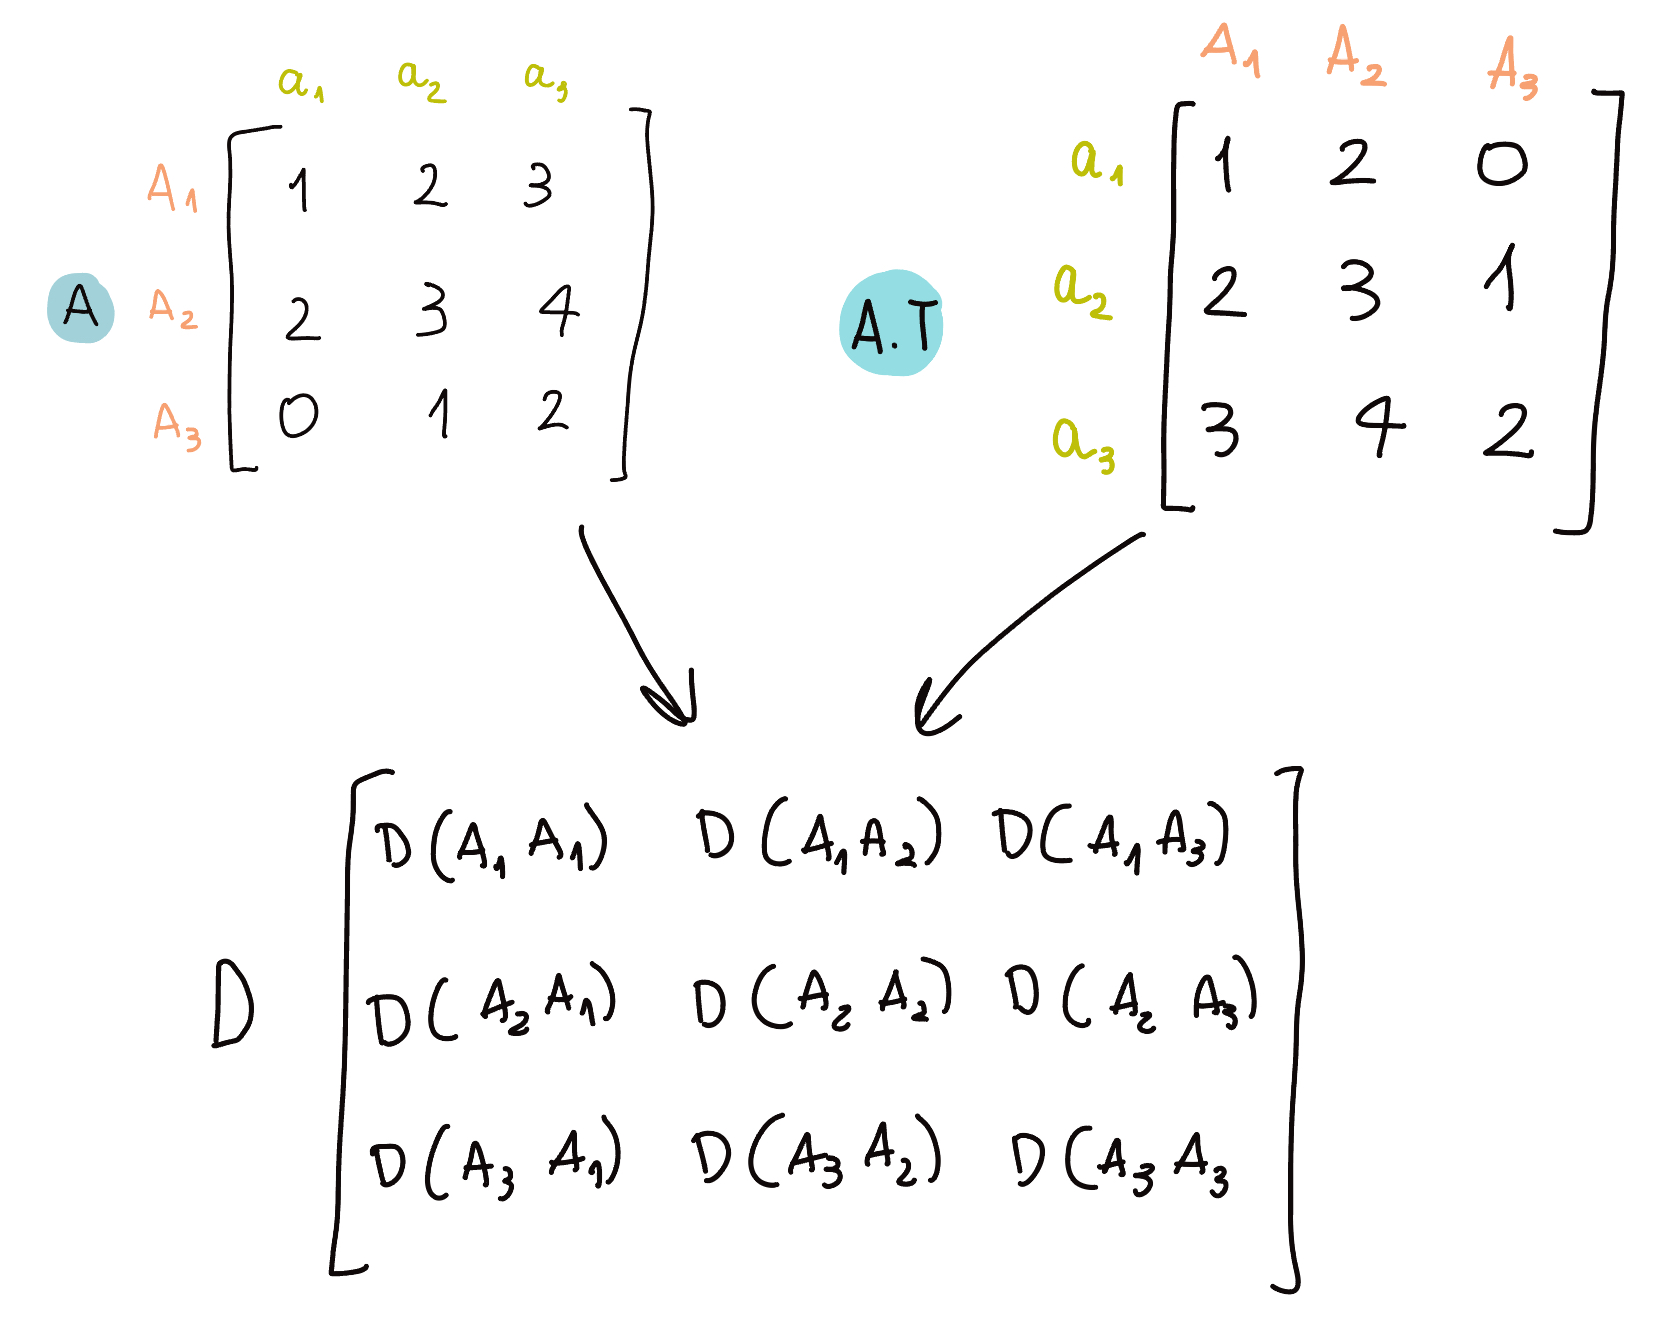 a₁ a₂ a₃
A₁ 1 2 3
A A₂ 2 3 4
A₃ 0 1 2
A₁ A₂ A₃
a₁ 1 2 0
A.T a₂ 2 3 1
a₃ 3 4 2
D(A₁ A₁) D(A₁ A₂) D(A₁ A₃)
D D(A₂ A₁) D(A₂ A₂) D(A₂ A₃)
D(A₃ A₁) D(A₃ A₂) D(A₃ A₃